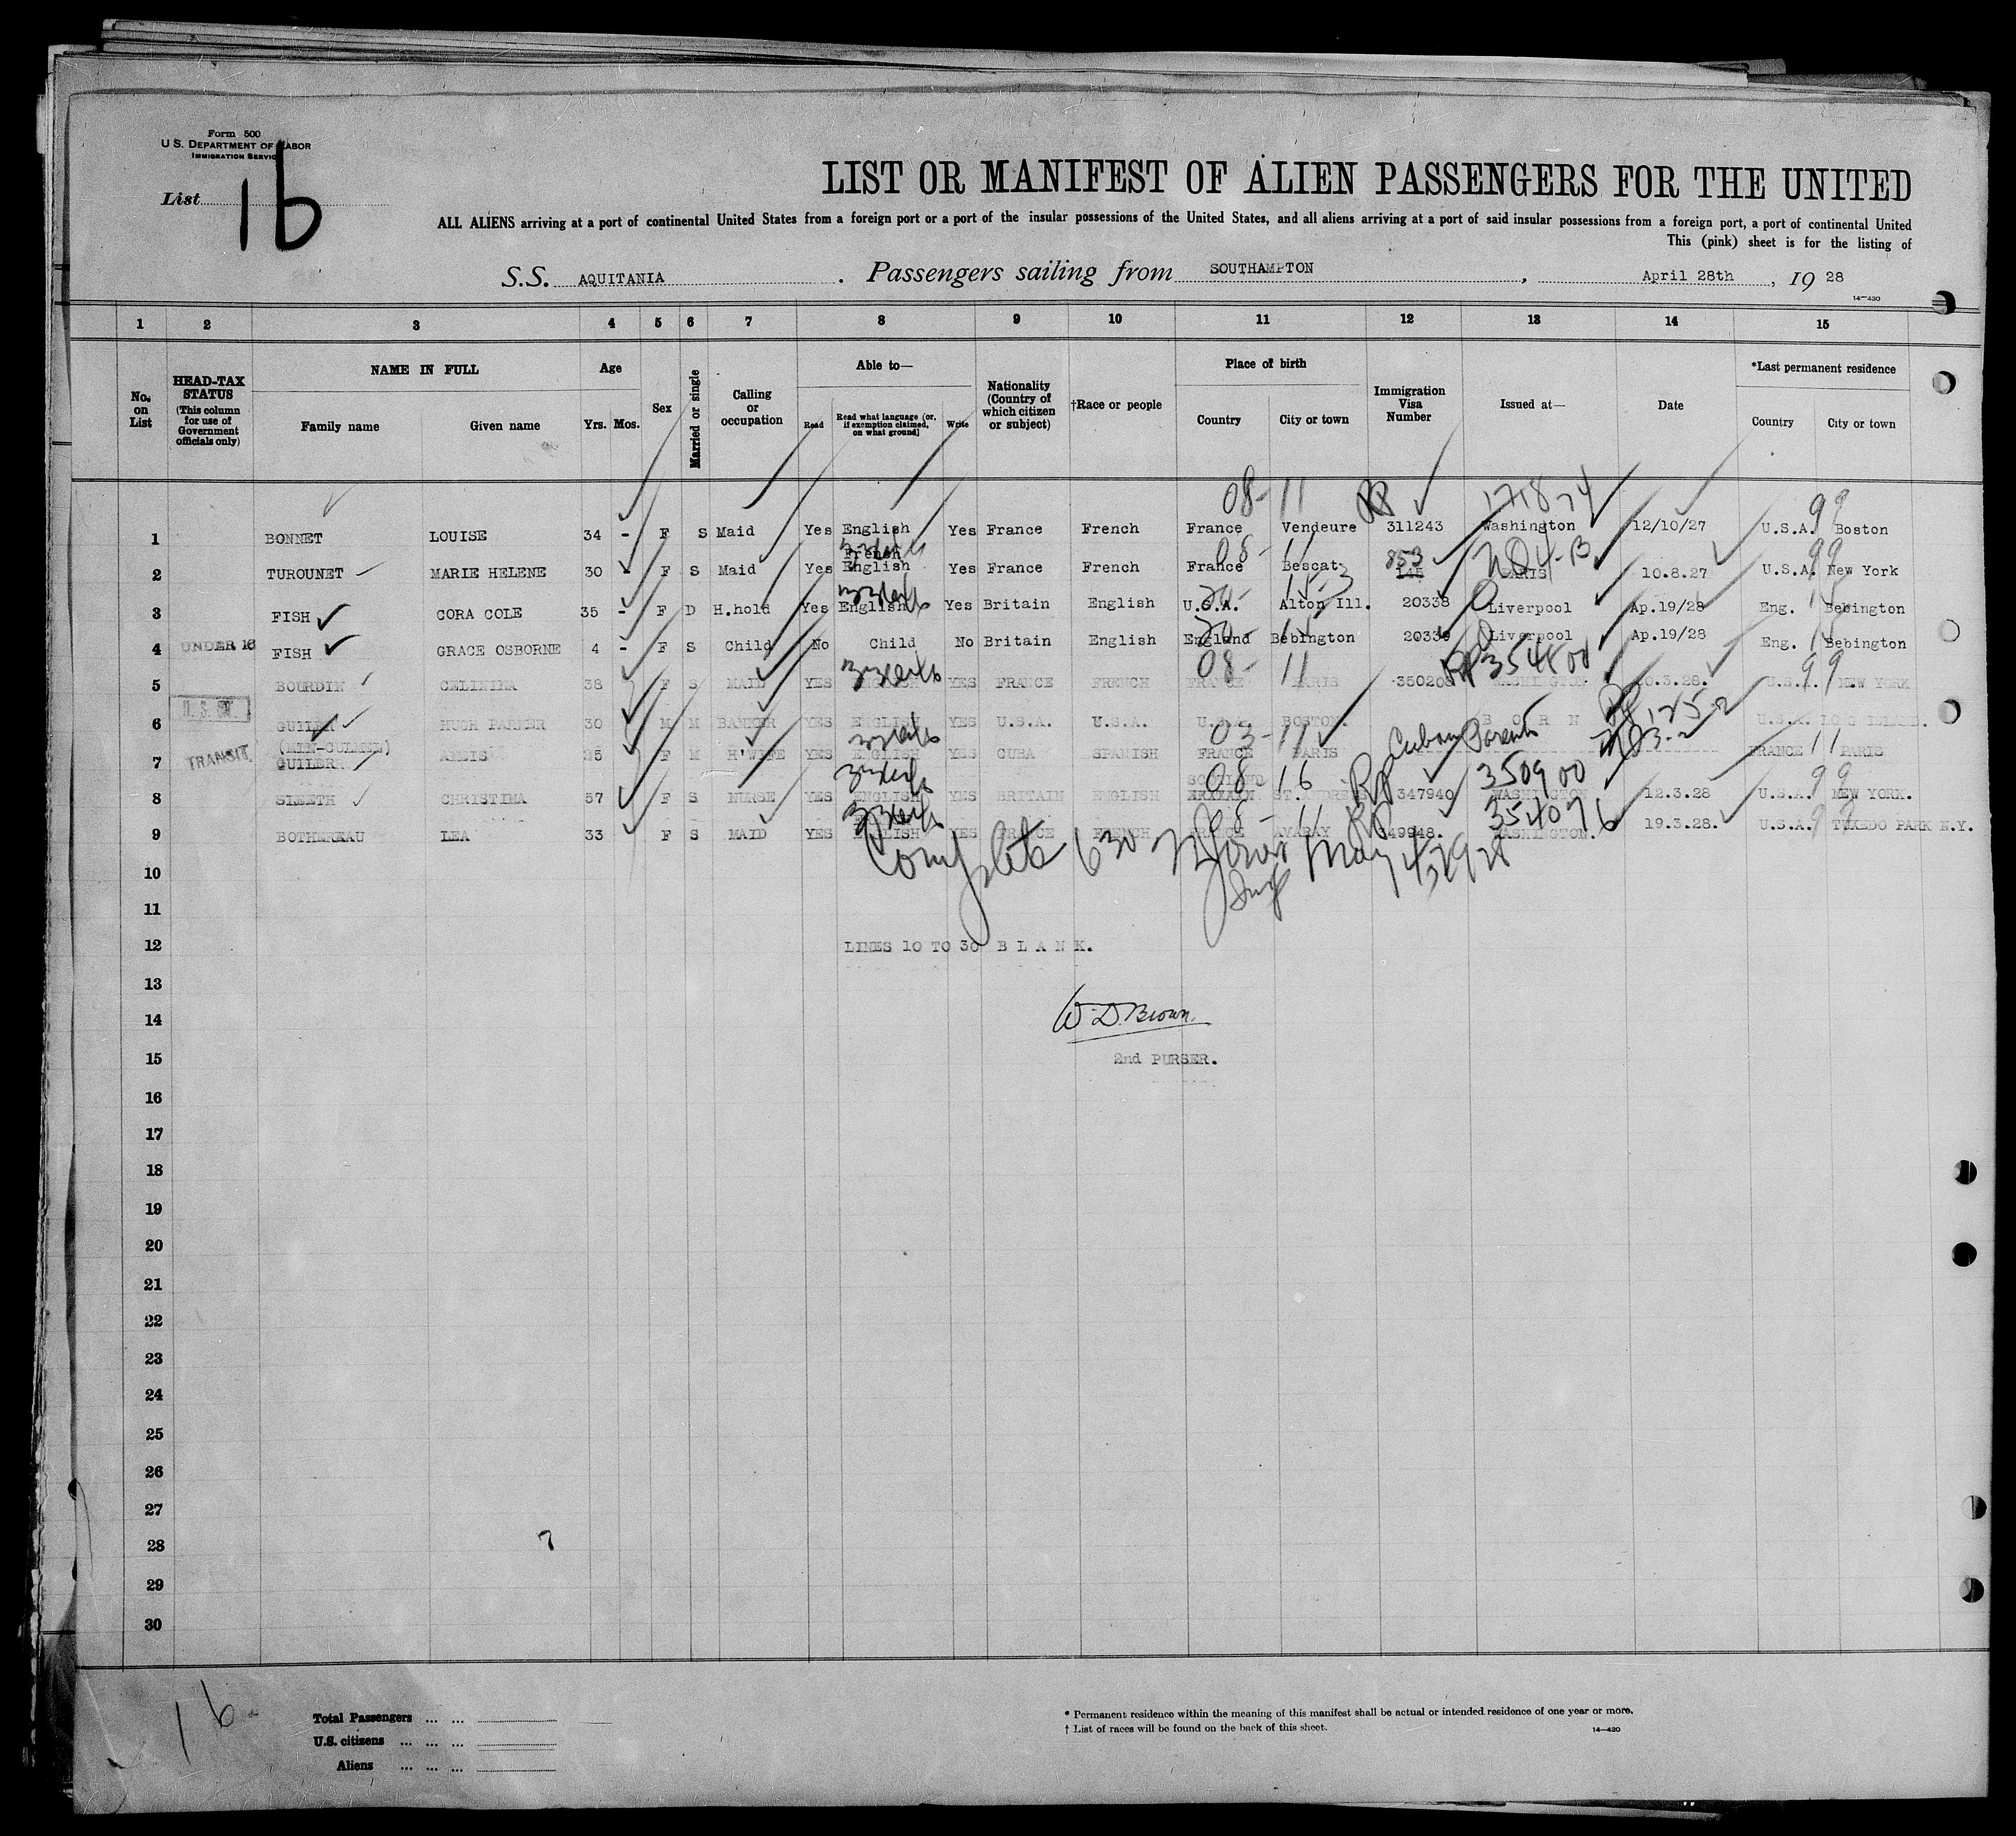 Form 500
U.S. DEPARTMENT OF LABOR
IMMIGRATION SERVICE
List 16
LIST OR MANIFEST OF ALIEN PASSENGERS FOR THE UNITED
ALL ALIENS arriving at a port of continental United States from a foreign port or a port of the insular possessions of the United States, and all aliens arriving at a port of said insular possessions from a foreign port, a port of continental United
This (pink) sheet is for the listing of
S.S. AQUITANIA. Passengers sailing from SOUTHAMPTON, April 28th, 19 28
14—430
1 2 3 4 5 6 7 8 9 10 11 12 13 14 15
No. on List
HEAD-TAX STATUS (This column for use of Government officials only)
NAME IN FULL
Family name Given name
Age
Yrs. Mos.
Sex
Married or single
Calling or occupation
Able to—
Read Read what language [or, if exemption claimed, on what ground] Write
Nationality (Country of which citizen or subject)
†Race or people
Place of birth
Country City or town
Immigration Visa Number
Issued at—
Date
*Last permanent residence
Country City or town
08-11 99
1 BONNET LOUISE 34 - F S Maid Yes English Yes France French France Vendeure 311243 Washington 12/10/27 U.S.A. Boston
French 08-11 853 99
2 TUROUNET MARIE HELENE 30 - F S Maid Yes English Yes France French France Bescat 145 PARIS 10.8.27 U.S.A. New York
3 FISH CORA COLE 35 - F D H.hold Yes English Yes Britain English U.S.A. Alton Ill. 20338 Liverpool Ap.19/28 Eng. Bebington
4 UNDER 16 FISH GRACE OSBORNE 4 - F S Child No Child No Britain English England Bebington 20339 Liverpool Ap.19/28 Eng. Bebington
08-11 354800 99
5 BOURDIN CELININA 38 F S MAID YES ENGLISH YES FRANCE FRENCH FRANCE PARIS 350208 WASHINGTON 3.28. U.S.A. NEW YORK
6 GUILER HUGH PARKER 30 M M BANKER YES ENGLISH YES U.S.A. U.S.A. U.S.A. BOSTON. BORN U.S.A.
03-11 Cuban Parents 11
7 TRANSIT GUILER 25 F M H'WIFE YES ENGLISH YES CUBA SPANISH FRANCE PARIS FRANCE PARIS
SCOTLAND 08-16 RP 350900 99
8 SLEETH CHRISTINA 57 F S NURSE YES ENGLISH YES BRITAIN ENGLISH ST. ANDREWS 347940 WASHINGTON 12.3.28 U.S.A. NEW YORK.
08-11 RP 354076 99
9 BOTHEREAU LEA 33 F S MAID YES ENGLISH YES FRANCE FRENCH FRANCE 49948. WASHINGTON. 19.3.28. U.S.A. TUXEDO PARK N.Y.
Complete 630 May 4, 1928
10
11
12 LINES 10 TO 30 BLANK.
13
14 W. D. Brown.
15 2nd PURSER.
16
17
18
19
20
21
22
23
24
25
26
27
28 7
29
30
16
Total Passengers
U.S. citizens
Aliens
* Permanent residence within the meaning of this manifest shall be actual or intended residence of one year or more.
† List of races will be found on the back of this sheet.
14—430